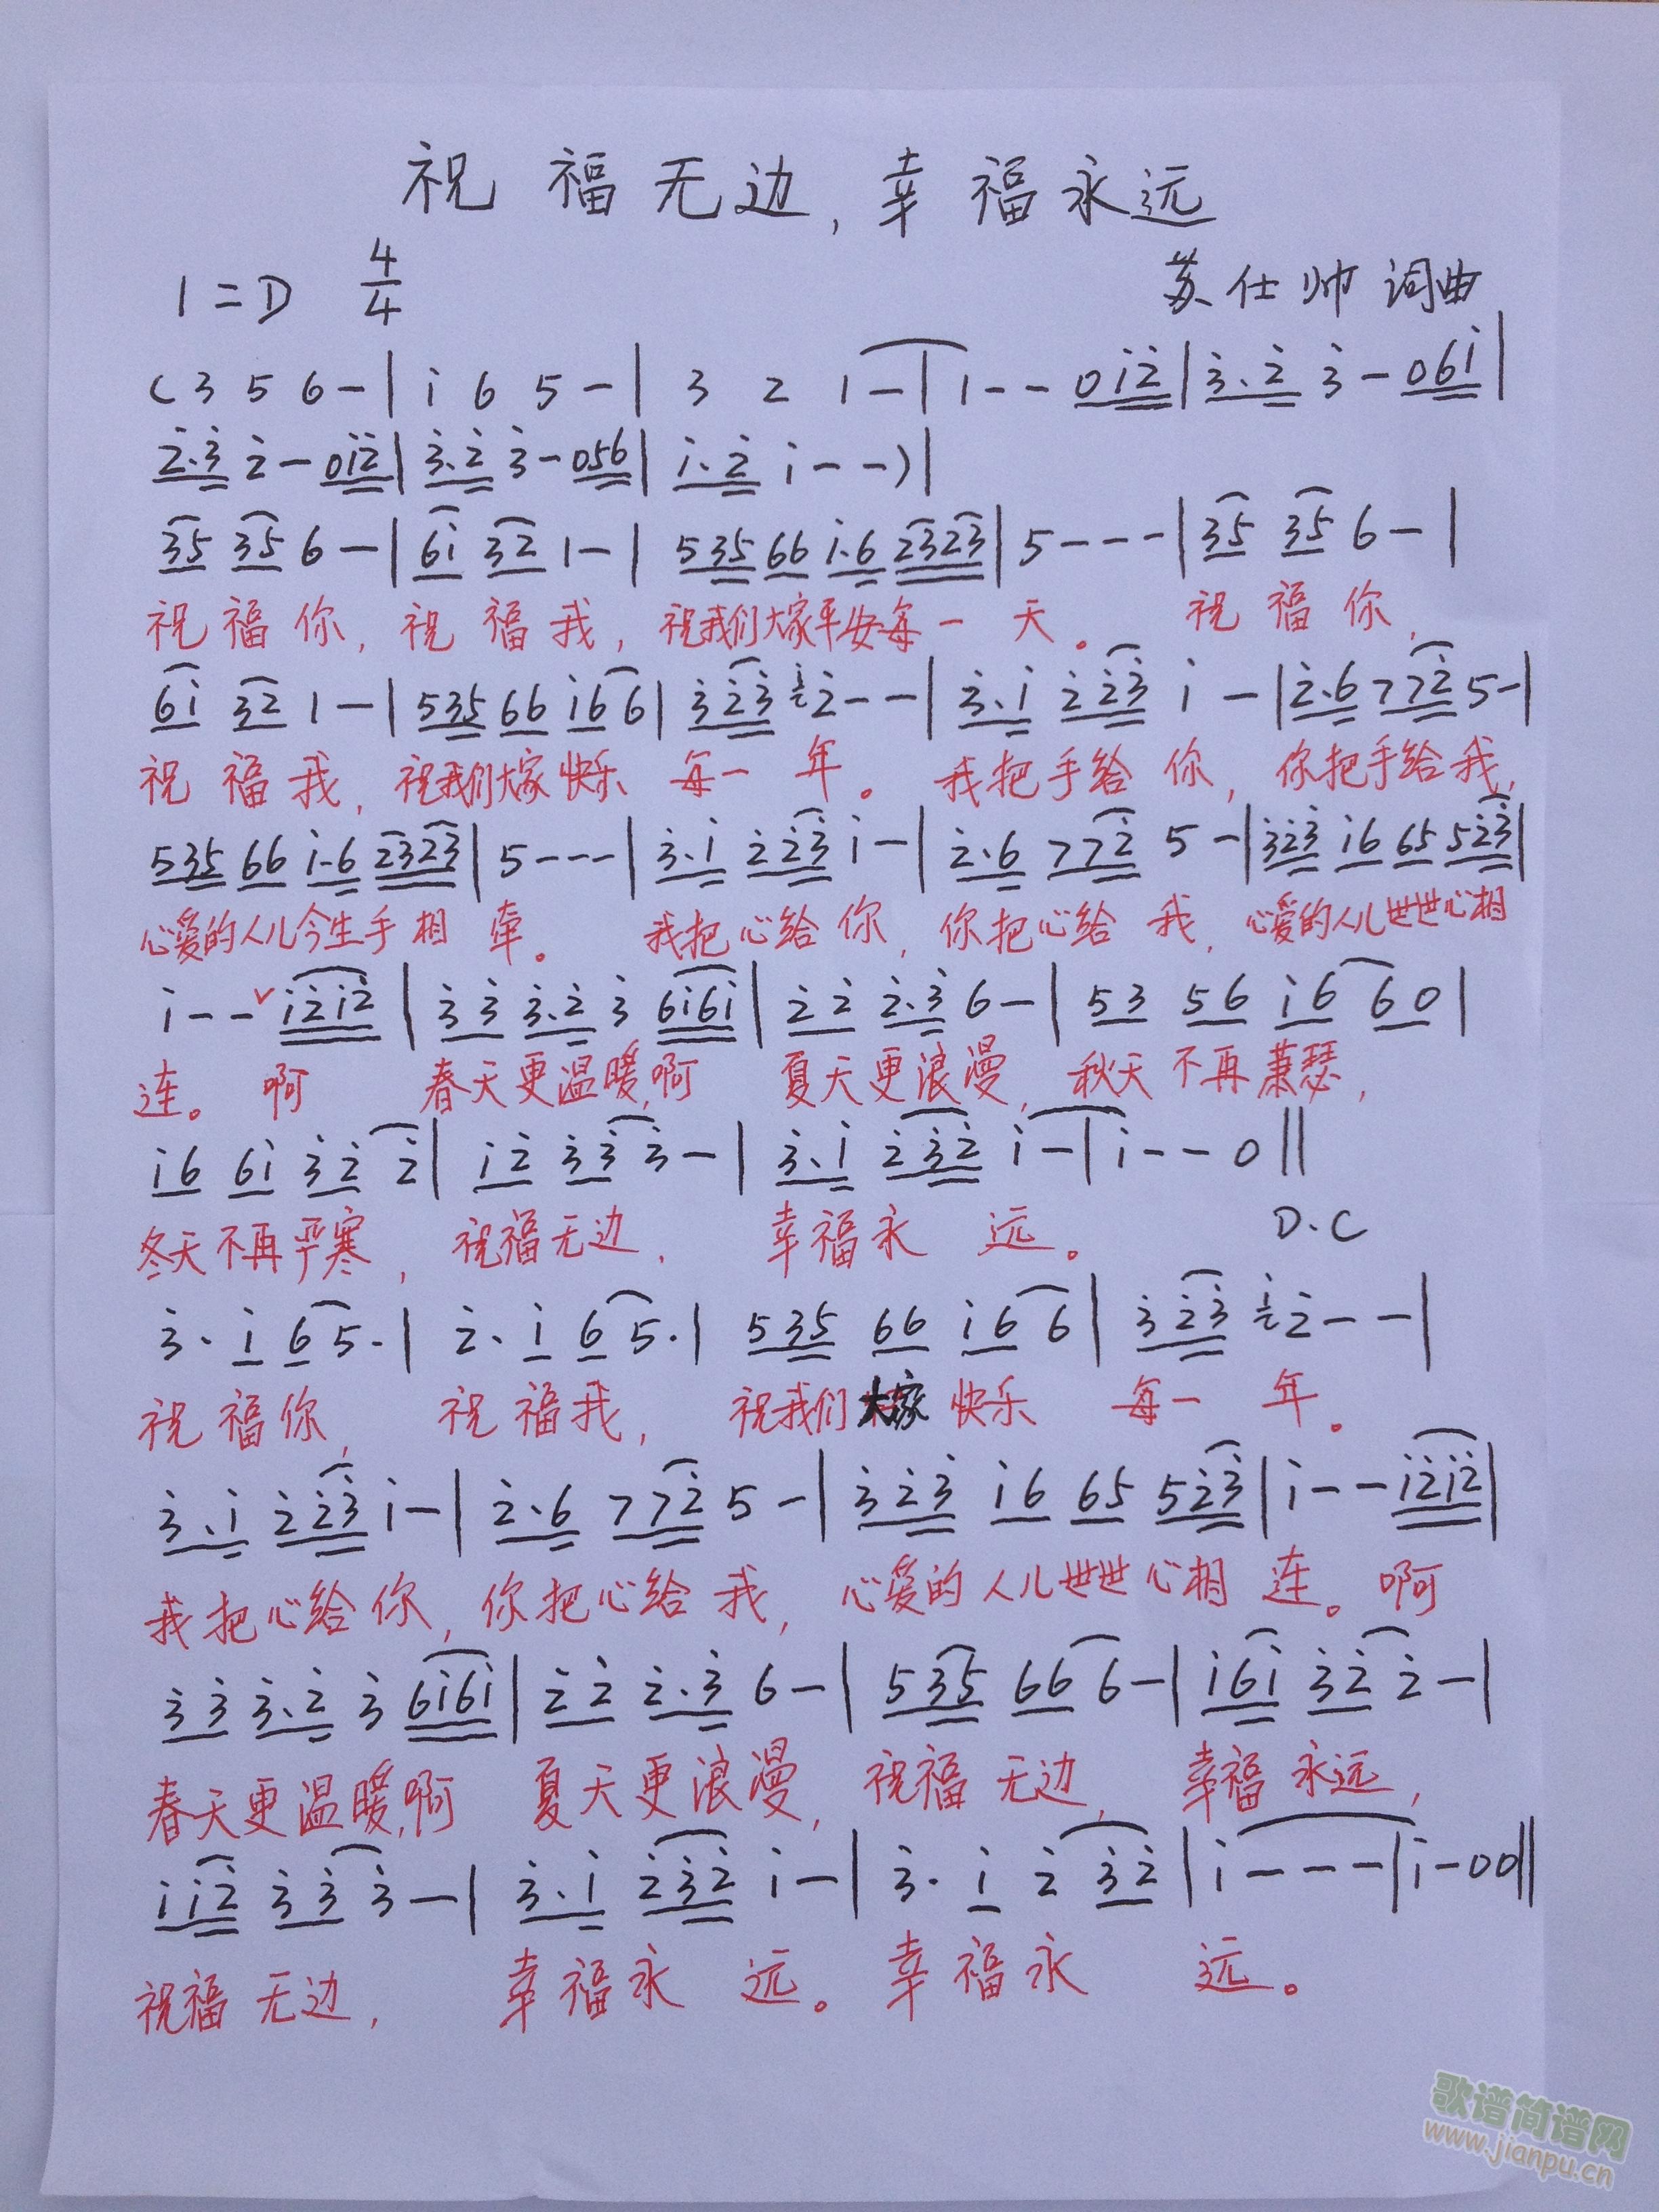 祝福无边,幸福永远
1=D 4/4 苏仕帅 词曲
(3 5 6 - | i 6 5 - | 3 2 1 - | 1 - - 0i̇2̇ | 3̇.2̇ 3̇ - 06i̇ |
2̇.3̇ 2̇ - 0i̇2̇ | 3̇.2̇ 3̇ - 056 | i̇.2̇ i̇ - - ) |
35 35 6 - | 6i̇ 32 1 - | 535 66 i̇.6 2323 | 5 - - - | 35 35 6 - |
祝福你,祝福我,祝我们大家平安每一天。祝福你,
6i̇ 32 1 - | 535 66 i̇6 6 | 3̇2̇3̇ i̇2̇ - - | 3̇.i̇ 2̇2̇3̇ i̇ - | 2̇.6 772̇ 5 - |
祝福我,祝我们大家快乐每一年。我把手给你,你把手给我,
535 66 i̇.6 2323 | 5 - - - | 3̇.i̇ 2̇2̇3̇ i̇ - | 2̇.6 772̇ 5 - | 3̇2̇3̇ i̇6 65 52̇3̇ |
心爱的人儿今生手相牵。我把心给你,你把心给我,心爱的人儿世世心相
i̇ - - ∨ i̇2̇i̇2̇ | 3̇3̇ 3̇.2̇ 3̇ 6i̇6i̇ | 2̇2̇ 2̇.3̇ 6 - | 53 56 i̇6 60 |
连。啊 春天更温暖,啊 夏天更浪漫,秋天不再萧瑟,
i̇6 6i̇ 3̇2̇ 2̇ | i̇2̇ 3̇3̇ 3̇ - | 3̇.i̇ 2̇3̇2̇ i̇ - | i̇ - - 0 ||
冬天不再严寒,祝福无边,幸福永远。 D.C
3̇. i̇ 6 5. | 2̇. i̇ 6 5. | 535 66 i̇6 6 | 3̇2̇3̇ i̇2̇ - - |
祝福你,祝福我,祝我们大家快乐每一年。
3̇.i̇ 2̇2̇3̇ i̇ - | 2̇.6 772̇ 5 - | 3̇2̇3̇ i̇6 65 52̇3̇ | i̇ - - i̇2̇i̇2̇ |
我把心给你,你把心给我,心爱的人儿世世心相连。啊
3̇3̇ 3̇.2̇ 3̇ 6i̇6i̇ | 2̇2̇ 2̇.3̇ 6 - | 535 66 6 - | i̇6i̇ 3̇2̇ 2̇ - |
春天更温暖,啊 夏天更浪漫,祝福无边,幸福永远,
i̇i̇2̇ 3̇3̇ 3̇ - | 3̇.i̇ 2̇3̇2̇ i̇ - | 3̇. i̇ 2̇ 3̇2̇ | i̇ - - - | i̇ - 0 0 ||
祝福无边,幸福永远。幸福永远。
歌谱简谱网
www.jianpu.cn